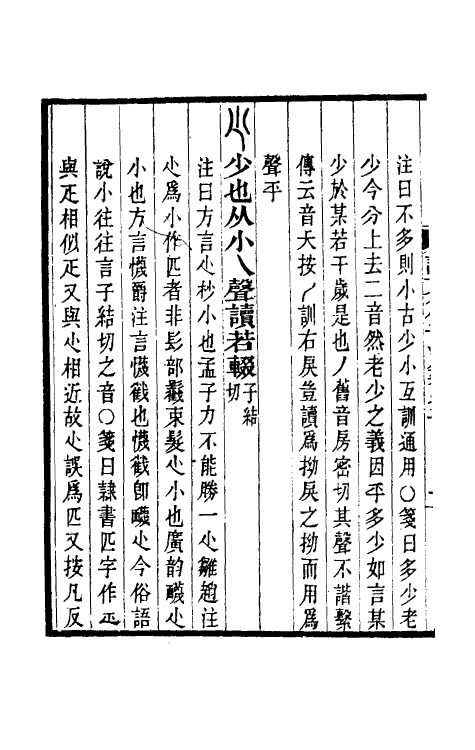 注曰不多則小古少小互訓通用○箋曰多少老
少今分上去二音然老少之義因乎多少如言某
少於某若干歲是也丿舊音房密切其聲不諧繫
傳云音夭按丿訓右戾豈讀爲拗戾之拗而用爲
聲乎
少也从小乀聲讀若輟子結切
注曰方言尐杪小也孟子力不能勝一尐雛趙注
尐爲小作匹者非髟部鬣束髮尐小也廣韵𪓌尐
小也方言懱爵注言懱𢧵也懱𢧵卽𪓌尐今俗語
說小往往言子結切之音○箋曰隷書匹字作𤴓
與疋相似疋又與尐相近故尐誤爲匹又按凡反